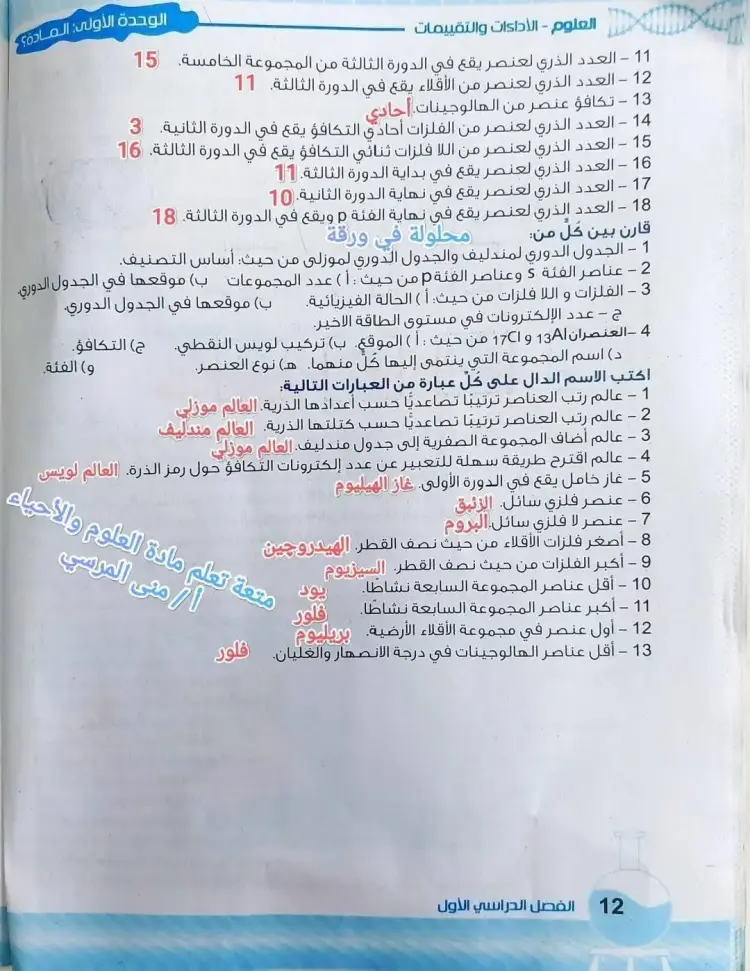 العلوم - الأداءات والتقييمات
الوحدة الأولى: المادة؟
11 – العدد الذري لعنصر يقع في الدورة الثالثة من المجموعة الخامسة. 15
12 – العدد الذري لعنصر من الأقلاء يقع في الدورة الثالثة. 11
13 – تكافؤ عنصر من الهالوجينات. أحادي
14 – العدد الذري لعنصر من الفلزات أحادي التكافؤ يقع في الدورة الثانية. 3
15 – العدد الذري لعنصر من اللا فلزات ثنائي التكافؤ يقع في الدورة الثالثة. 16
16 – العدد الذري لعنصر يقع في بداية الدورة الثالثة. 11
17 – العدد الذري لعنصر يقع في نهاية الدورة الثانية. 10
18 – العدد الذري لعنصر يقع في نهاية الفئة p ويقع في الدورة الثالثة. 18
قارن بين كلٍّ من: محلولة في ورقة
1 – الجدول الدوري لمندليف والجدول الدوري لموزلى من حيث: أساس التصنيف.
2 – عناصر الفئة s وعناصر الفئة p من حيث : أ ) عدد المجموعات ب) موقعها في الجدول الدوري.
3 – الفلزات و اللا فلزات من حيث: أ ) الحالة الفيزيائية. ب) موقعها في الجدول الدوري.
ج – عدد الإلكترونات في مستوى الطاقة الاخير.
4 –العنصران 13Al و 17Cl من حيث : أ ) الموقع. ب) تركيب لويس النقطي. ج) التكافؤ.
د) اسم المجموعة التي ينتمى إليها كلٌّ منهما. هـ) نوع العنصر. و) الفئة.
اكتب الاسم الدال على كلِّ عبارة من العبارات التالية:
1 – عالم رتب العناصر ترتيبًا تصاعديًّا حسب أعدادها الذرية. العالم موزلي
2 – عالم رتب العناصر ترتيبًا تصاعديًّا حسب كتلتها الذرية. العالم مندليف
3 – عالم أضاف المجموعة الصفرية إلى جدول مندليف. العالم موزلي
4 – عالم اقترح طريقة سهلة للتعبير عن عدد إلكترونات التكافؤ حول رمز الذرة. العالم لويس
5 – غاز خامل يقع في الدورة الأولى. غاز الهيليوم
6 – عنصر فلزي سائل. الزئبق
7 – عنصر لا فلزي سائل. البروم
8 – أصغر فلزات الأقلاء من حيث نصف القطر. الهيدروچين
9 – أكبر الفلزات من حيث نصف القطر. السيزيوم
10 – أقل عناصر المجموعة السابعة نشاطًا. يود
11 – أكبر عناصر المجموعة السابعة نشاطًا. فلور
12 – أول عنصر في مجموعة الأقلاء الأرضية. بريليوم
13 – أقل عناصر الهالوجينات في درجة الانصهار والغليان. فلور
متعة تعلم مادة العلوم والأحياء
أ / منى المرسي
12 الفصل الدراسي الأول